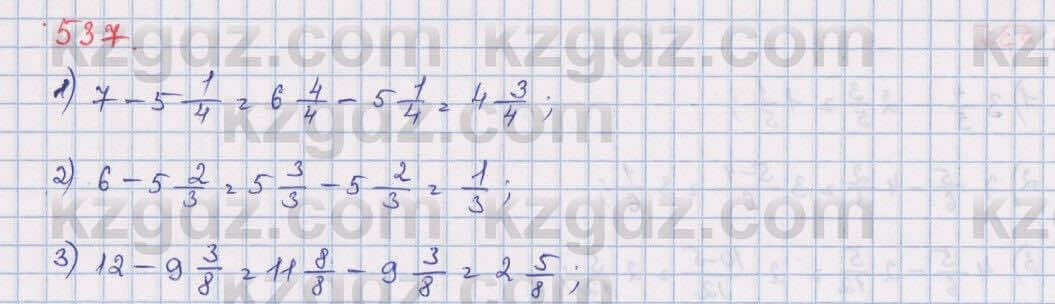 537.
kzgdz.com kzgdz.com kz
1) 7 - 5 1/4 = 6 4/4 - 5 1/4 = 4 3/4;
kzgdz.com
2) 6 - 5 2/3 = 5 3/3 - 5 2/3 = 1/3;
kzgdz.com kzgdz.com kz
3) 12 - 9 3/8 = 11 8/8 - 9 3/8 = 2 5/8;
kzgdz.com